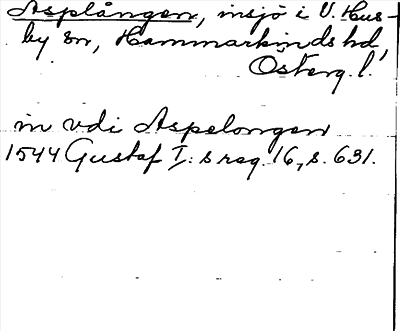 Asplången, insjö i V. Hus-
by sn, Hammarkinds hd,
Österg. l.
in vdi Aspelongen
1544 Gustaf I:s reg. 16, s. 631.